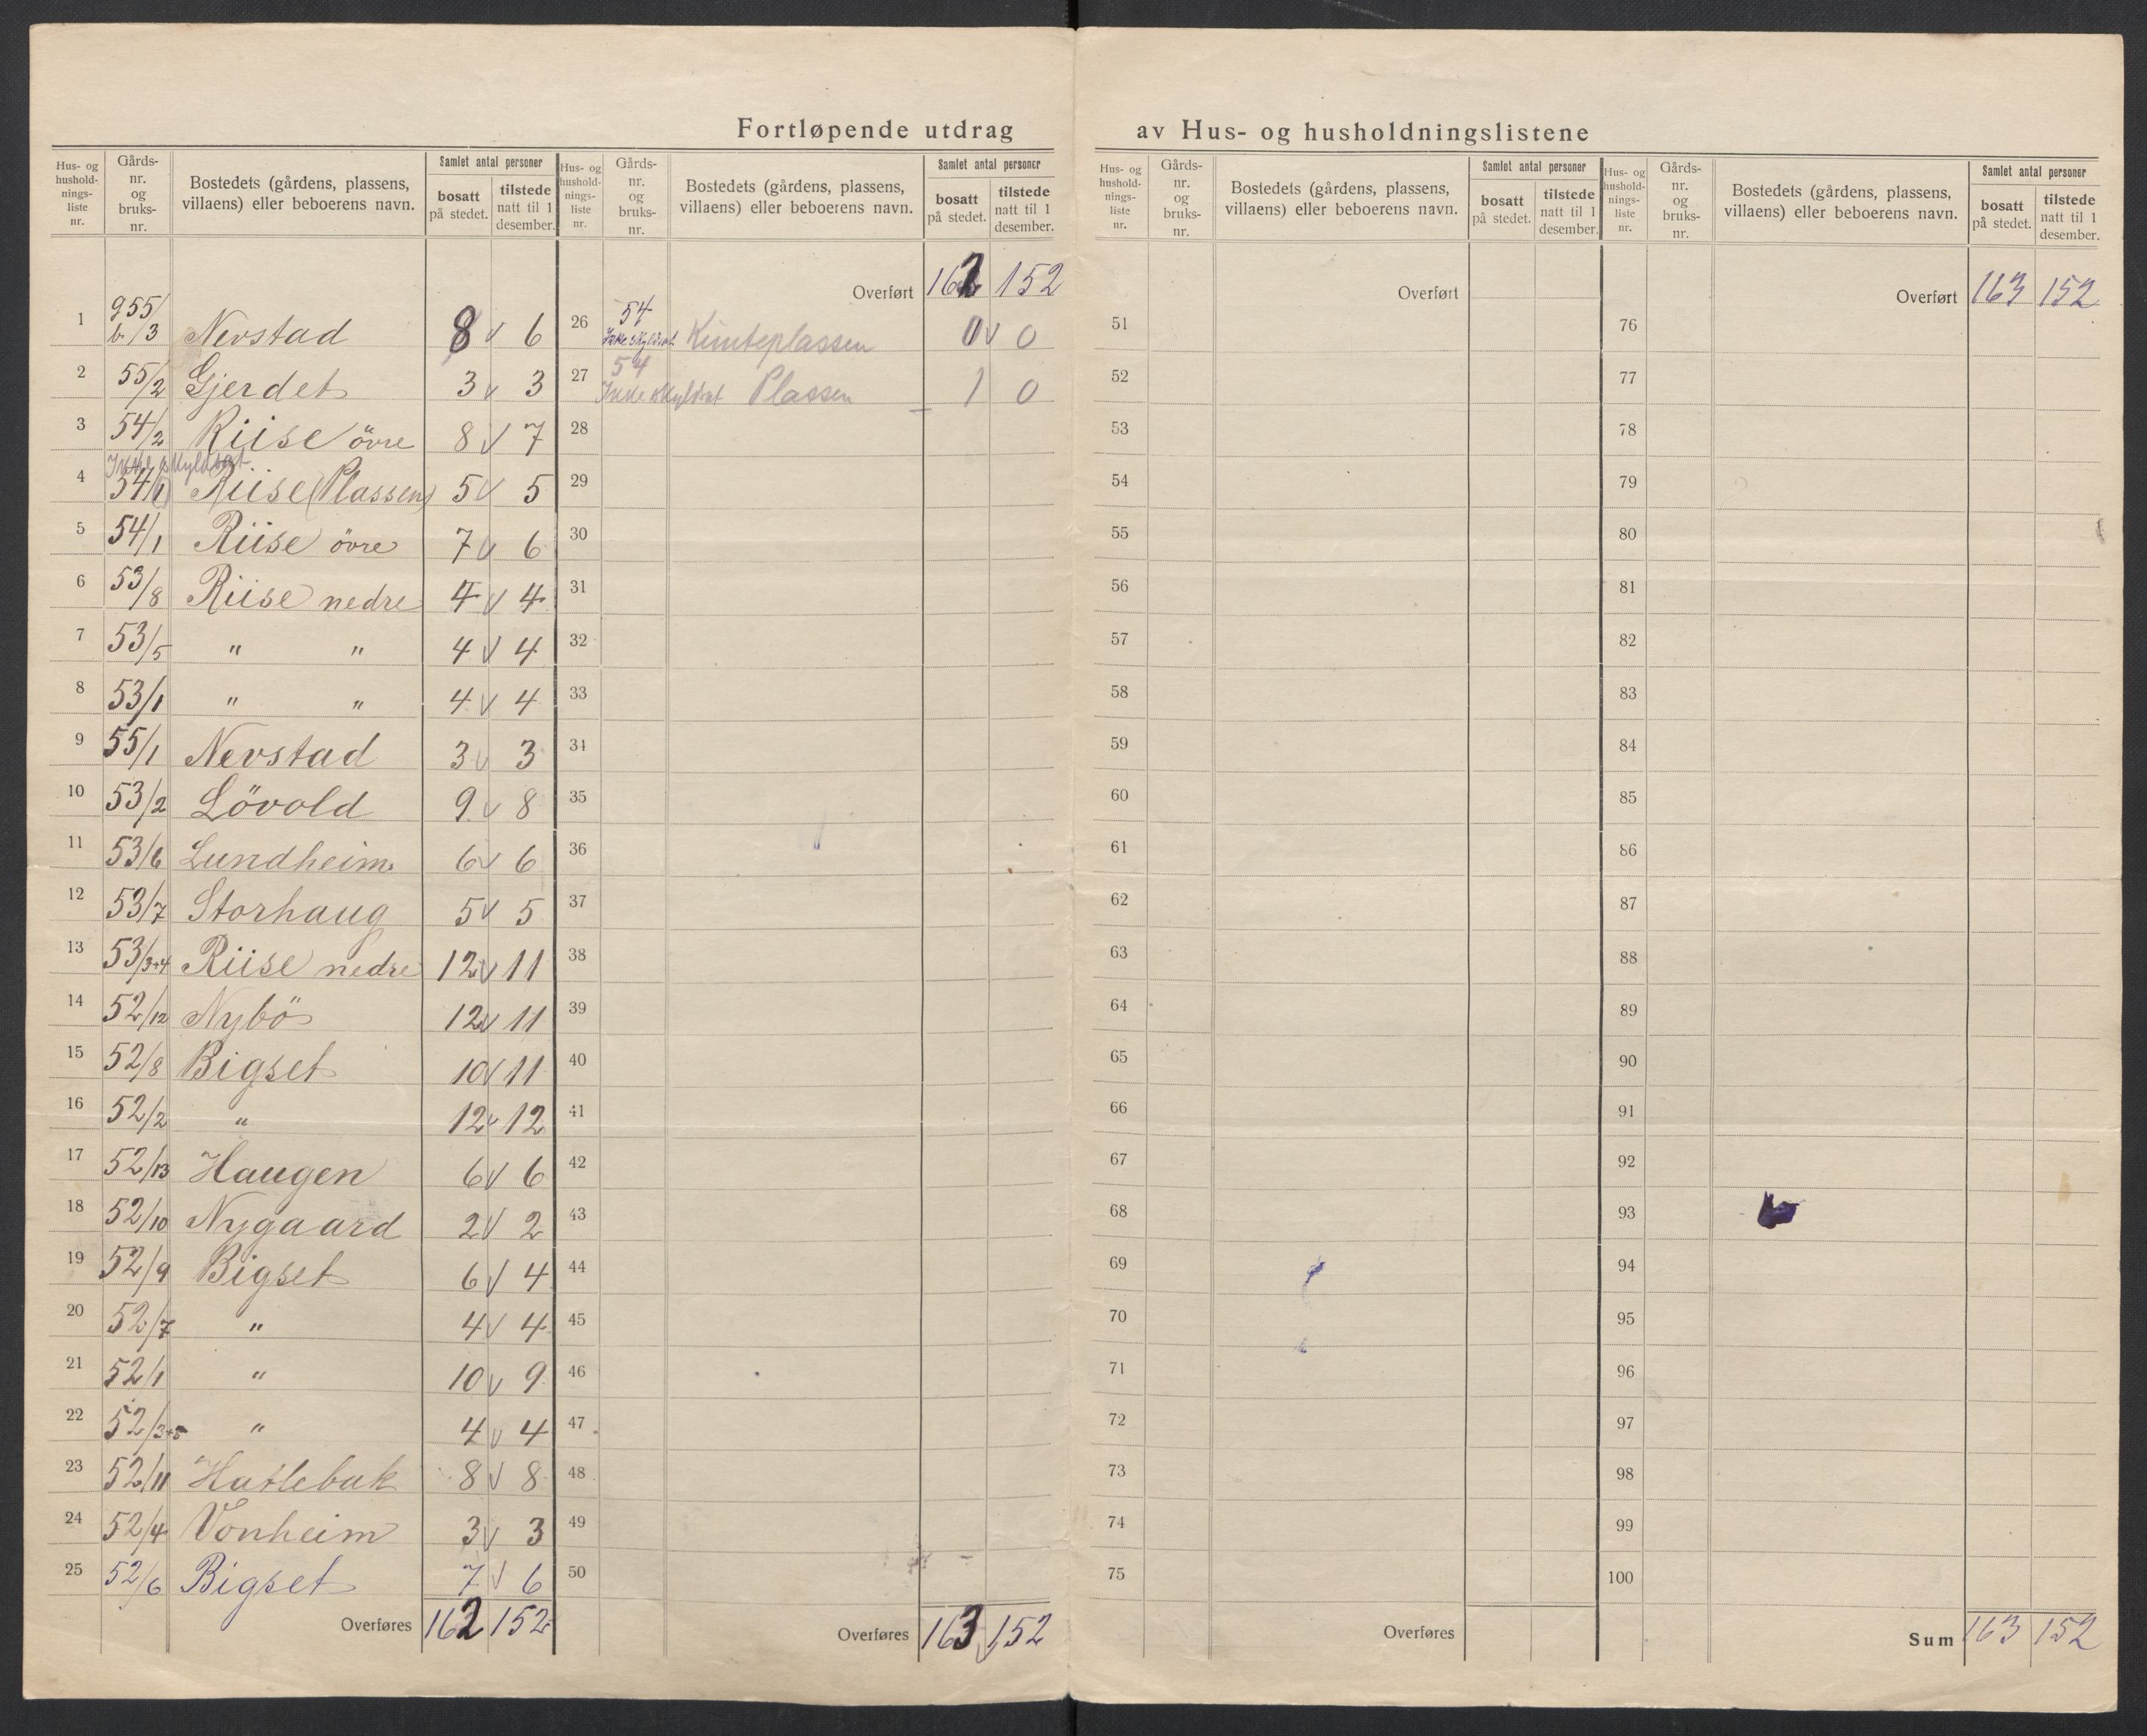 Fortløpende utdrag av Hus- og husholdningslistene
Hus- og hushold-nings-liste nr. Gårds-nr. og bruks-nr. Bostedets (gårdens, plassens, villaens) eller beboerens navn. Samlet antal personer bosatt på stedet. tilstede natt til 1 desember.
1 g 55/ b. /3 Nerstad 8 v 6
2 55/2 Gjerdet 3 v 3
3 54/2 Riise övre 8 v 7
Ikke skyldsat
4 54/1 Riise (Plassen) 5 v 5
5 54/1 Riise övre 7 v 6
6 53/8 Riise nedre 4 v 4
7 53/5 " " 4 v 4
8 53/1 " " 4 v 4
9 55/1 Nerstad 3 v 3
10 53/2 Lövold 9 v 8
11 53/6 Lundheim 6 v 6
12 53/7 Storhaug 5 v 5
13 53/3+4 Riise nedre 12 v 11
14 52/12 Nybö 12 v 11
15 52/8 Bigset 10 v 11
16 52/2 " 12 v 12
17 52/13 Haugen 6 v 6
18 52/10 Nygaard 2 v 2
19 52/9 Bigset 6 v 4
20 52/7 " 4 v 4
21 52/1 " 10 v 9
22 52/3+5 " 4 v 4
23 52/11 Hatlebak 8 v 8
24 52/4 Vonheim 3 v 3
25 52/6 Bigset 7 v 6
Overføres 162 152
Hus- og hushold-nings-liste nr. Gårds-nr. og bruks-nr. Bostedets (gårdens, plassens, villaens) eller beboerens navn. Samlet antal personer bosatt på stedet. tilstede natt til 1 desember.
Overført 162 152
54
26 Ikke skyldsat 0 v 0
54
27 Ikke skyldsat Plassen 1 0
28
29
30
31
32
33
34
35
36
37
38
39
40
41
42
43
44
45
46
47
48
49
50
Overføres 163 v 152
Hus- og hushold-nings-liste nr. Gårds-nr. og bruks-nr. Bostedets (gårdens, plassens, villaens) eller beboerens navn. Samlet antal personer bosatt på stedet. tilstede natt til 1 desember.
Overført
51
52
53
54
55
56
57
58
59
60
61
62
63
64
65
66
67
68
69
70
71
72
73
74
75
Overføres
Hus- og hushold-nings-liste nr. Gårds-nr. og bruks-nr. Bostedets (gårdens, plassens, villaens) eller beboerens navn. Samlet antal personer bosatt på stedet. tilstede natt til 1 desember.
Overført 163 152
76
77
78
79
80
81
82
83
84
85
86
87
88
89
90
91
92
93
94
95
96
97
98
99
100
Sum 163 152